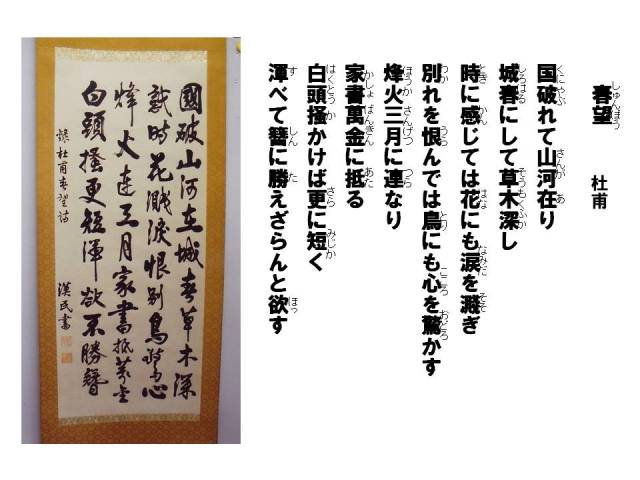 しゅんぼう
春望 杜甫
くにやぶ さんが あ
国破れて山河在り
しろはる そうもくふか
城春にして草木深し
とき かん はな なみだ そそ
時に感じては花にも涙を濺ぎ
わか うら とり こころ おどろ
別れを恨んでは鳥にも心を驚かす
ほうか さんげつ つら
烽火三月に連なり
かしょ ばんきん あた
家書萬金に抵る
はくとう か さら みじか
白頭掻かけば更に短く
す しん た ほっ
渾べて簪に勝えざらんと欲す
國破山河在城春草木深
感時花濺淚恨別鳥驚心
烽火連三月家書抵萬金
白頭搔更短渾欲不勝簪
錄杜甫春望詩
漢民書